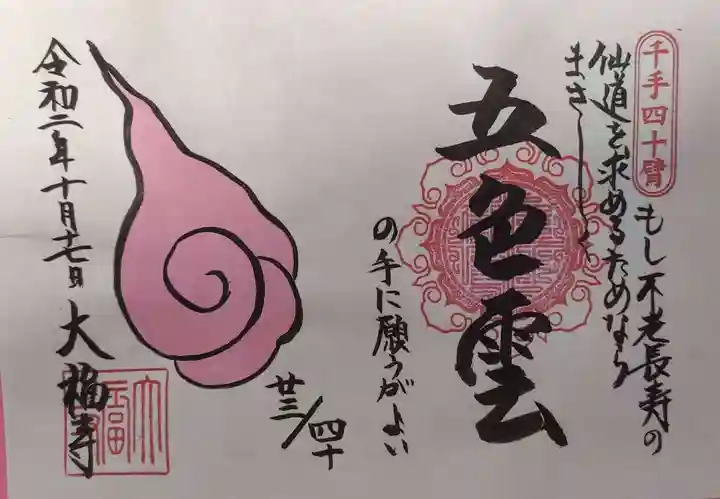 千手四十臂
もし不老長寿の
仙道を求めるためなら
まさしく
五色雲
の手に願うがよい
廿三/四十
令和二年十月十七日
大福寺